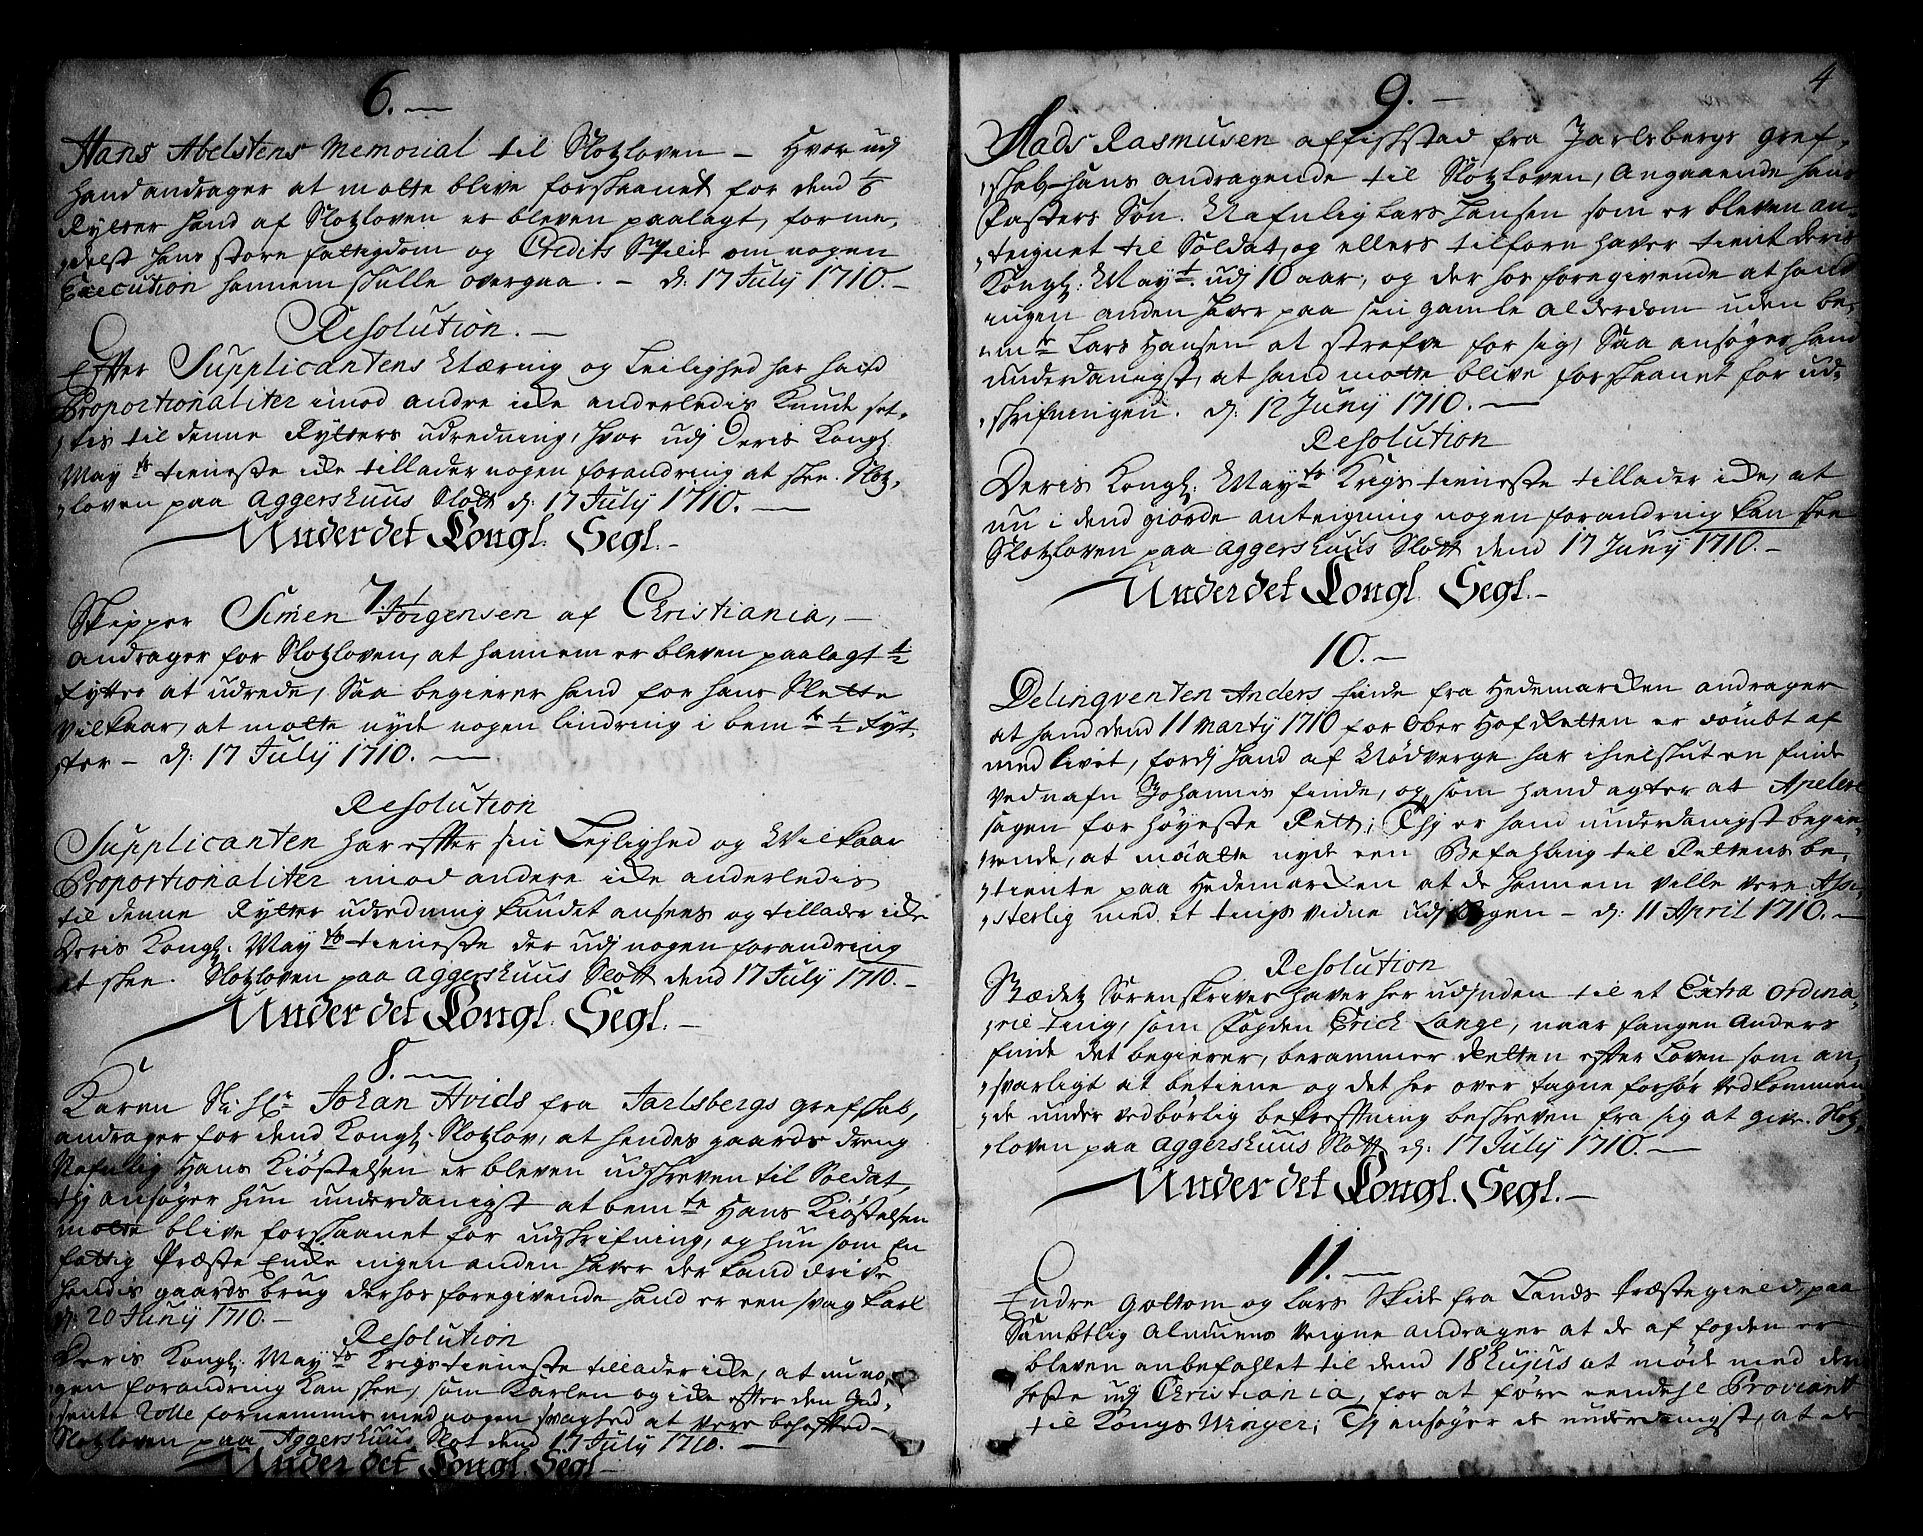 6. —
Hans Abelstens Memorial til Slotzloven — Hvor udj
hand andrager at motte blive forskaanet for dend 1/6
Rytter hand af Slotzloven er bleven paalagt, forme,
„delst hans store fattigdom og Credits Spilde om nogen
Execution hannem skulle overgaa. — d: 17 July 1710. —
Resolution. —
Efter Supplicantens Næring og Leilighed har hand
Proportionaliter imod andre icke anderledis kunde set,
„tis til denne Rytters udredning, hvor udj Deris Kongl:
Mayts tieneste icke tillader nogen forandring at skee. Slotz,
„loven paa Aggershuus Slott d: 17 July 1710. —
Under det Kongl. Segl. —
7.
Skipper Simen Jörgensen af Christiania, —
andrager for Slotzloven, at hannem er bleven paalagt 1/2
Rytter at udrede, Saa begierer hand for hans Slette
vilkaar, at motte nyde nogen lindring i bemte 1/2 Ryt,
„ter — d: 17 July 1710. —
Resolution
Supplicanten har efter sin Lejlighed og Vilkaar
Proportionaliter imod andere icke anderledis
til denne Rytter udredning kundet ansees og tillader icke
Deris Kongl: Mayts tieneste der udj nogen forandring
at skee. Slotzloven paa Aggershuus Slott dend 17 July 1710. —
Under det Kongl. Segl. —
8. —
Karen Sl: Hr Johan Hvids fra Jarlsbergs grefskab,
andrager for dend Kongl: Slotzlov, at hendes gaards dreng
Nafnlig Hans Kiöstelsen er bleven udskreven til Soldat,
thj ansöger hun underdanigst at bemte Hans Kiöstelsen
motte blive forskaanet for udskrifning, og hun som En
fattig Præste Encke ingen anden haver der kand drive
hendis gaards brug derhos foregivende hand er een svag karl
d: 20 Juny 1710. —
Resolution
Deris Kongl: Mayts Krigs tieneste tillader icke, at nu no,
„gen forandring kan skee, som Karlen og icke efter den Ind,
„sente Rolle fornemmis med nogen svaghed at vere beheftted —
Slotzloven paa Aggershuus Slot dend 17 July 1710. —
Under det Kongl. Segl —
4
9. —
Mads Rasmusen af fiskstad fra Jarlsbergs gref,
„skab hans andragende til Slotzloven, Angaaende hans
Fosters Sön. Nafnlig Lars Hansen som er bleven an,
„teignet til Soldat, og ellers tilforn haver tient deris
Kongl: Mayt. udj 10 aar, og der hos foregivende at hand
ingen anden haver paa sin gamle alderdom uden be,
„mte Lars Hansen at strefve for sig, Saa ansöger hand
underdanigst, at hand motte blive forskaanet for ud,
„skrifningen. d: 12 Juny 1710. —
Resolution
Deris Kongl: Mayts Krigs tieneste tillader icke, at
nu i dend giorde anteigning nogen forandring kan skee
Slotzloven paa Aggershuus Slott dend 17 Juny 1710. —
Under det Kongl. Segl. —
10. —
Delinqventen Anders finde fra Hedemarcken andrager
at hand dend 11 Marty 1710 for Ober Hof Retten er dömbt af
med livet, fordj hand af Nödverge har ihielskut en finde
ved nafn Johannis finde, og som hand agter at Apelere
sagen for höyeste Rett; Thj er hand underdanigst begie,
„rende, at maatte nyde een Befahling til Rettens be,
„tiente paa Hedemarcken at de hannem ville vere Assi,
„sterlig med et tings vidne udj sagen — d: 11 April 1710. —
Resolution
Stedetz Sörenskriver haver her udjnden til et Extra ordina,
„rie ting, som Fogden Erich Lange, naar fangen Anders
finde det begierer, berammer Retten efter Loven som an,
„svarligt at betiene og det her over tagne forhör vedkommen,
„de under vedbörlig bekreftning beskreven fra sig at give. Slotz,
„loven paa Aggershuus Slott d: 17 July 1710. —
Under det Kongl. Segl. —
11. —
Endre Goltom og Lars Skide fra Lands Præstegield, paa
Sambtlig Almuens veigne andrager at de af fogden er
bleven anbefahlet til dend 18 Hujus at möde med der
heste udj Christiania, for at före eendehl Proviant
til Kongs Winger; Thj ansöger de underdanigst, at de